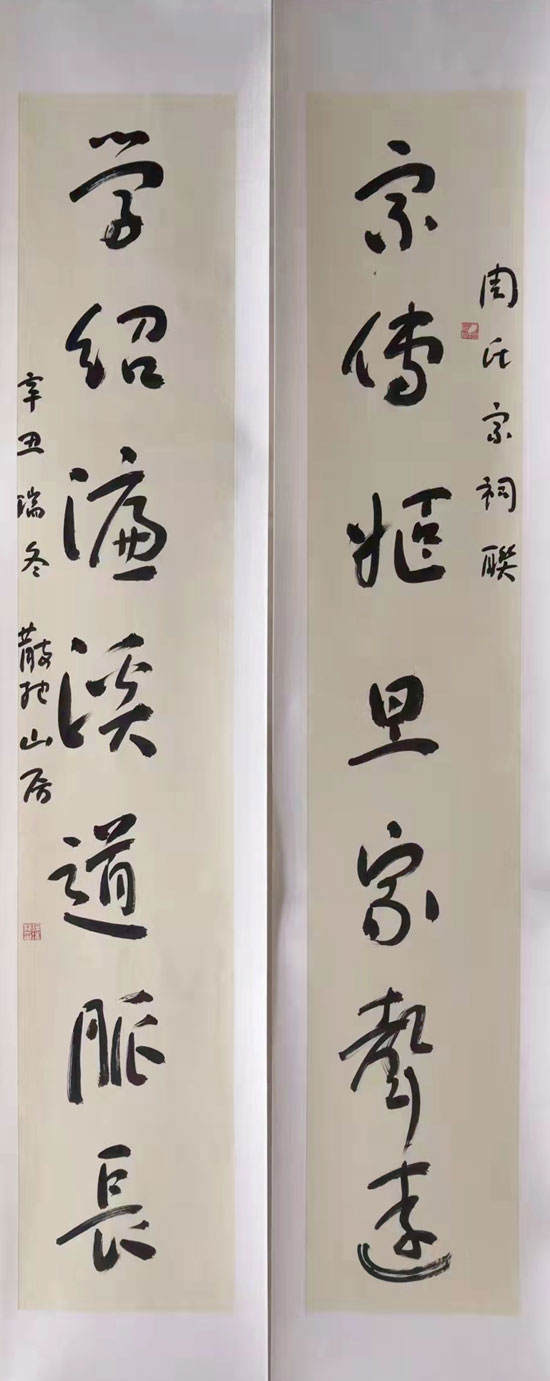 周氏宗祠联
宗傳姬旦家聲遠
学紹濂溪道脈長
辛丑瑞冬 散拙山房